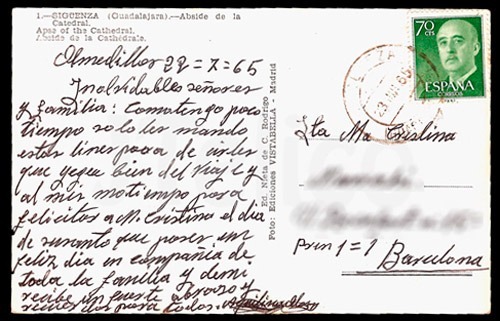 1.—SIGUENZA (Guadalajara).—Abside de la
Catedral.
Apse of the Cathedral.
Abside de la Cathédrale.
Olmedillas 22-7-65
Inolvidables señores
y familia: Comotengo poco
tiempo solo les mando
estas lineas para
que bien del viaje y
al mismo tiempo para
felicitar a M. Cristina el dia
de su santo que pasen un
feliz dia en compañia de
toda la familia y de mi
recibe un fuerte abrazo y
recuerdos para todos.
Ed. Nieta de C. Rodrigo
Foto: Ediciones VISTABELLA - Madrid
70
CTS
ESPAÑA
CORREOS
Sta Ma Cristina
Prin 1=1
Barcelona